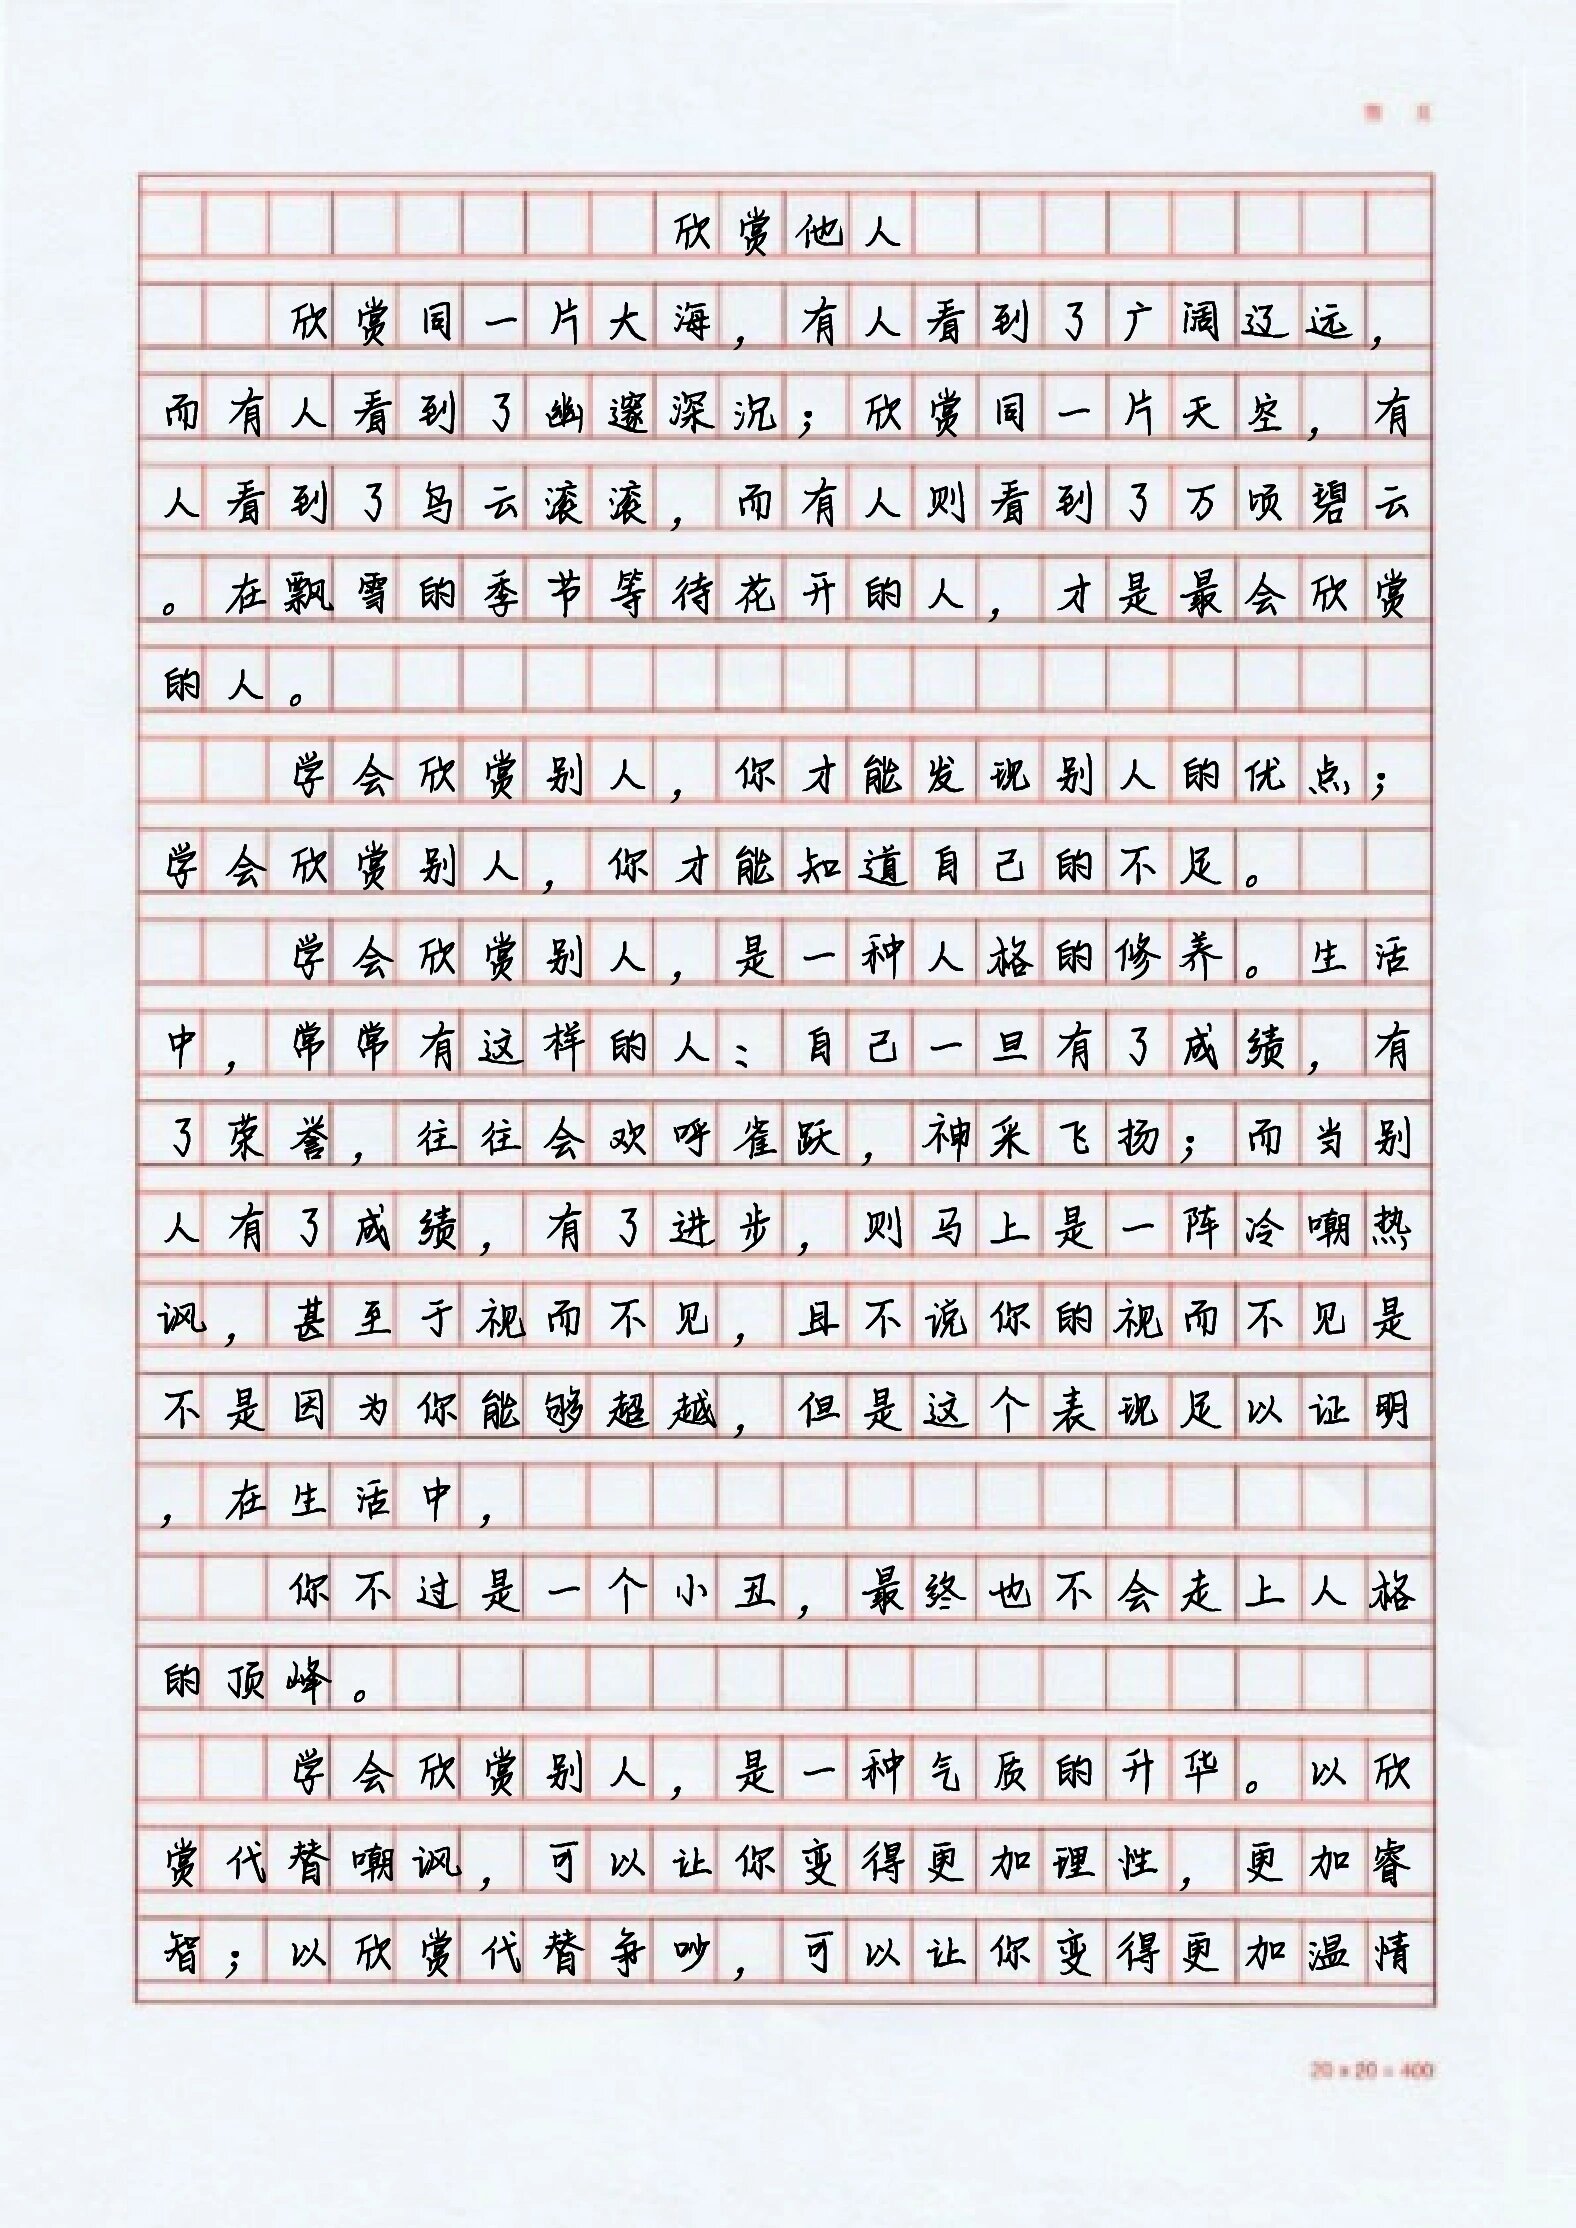 欣赏他人
欣赏同一片大海，有人看到了广阔辽远，
而有人看到了幽邃深沉；欣赏同一片天空，有
人看到了乌云滚滚，而有人则看到了万顷碧云
。在飘雪的季节等待花开的人，才是最会欣赏
的人。
学会欣赏别人，你才能发现别人的优点；
学会欣赏别人，你才能知道自己的不足。
学会欣赏别人，是一种人格的修养。生活
中，常常有这样的人：自己一旦有了成绩，有
了荣誉，往往会欢呼雀跃，神采飞扬；而当别
人有了成绩，有了进步，则马上是一阵冷嘲热
讽，甚至于视而不见，且不说你的视而不见是
不是因为你能够超越，但是这个表现足以证明
，在生活中，
你不过是一个小丑，最终也不会走上人格
的顶峰。
学会欣赏别人，是一种气质的升华。以欣
赏代替嘲讽，可以让你变得更加理性，更加睿
智；以欣赏代替争吵，可以让你变得更加温情
20×20=400